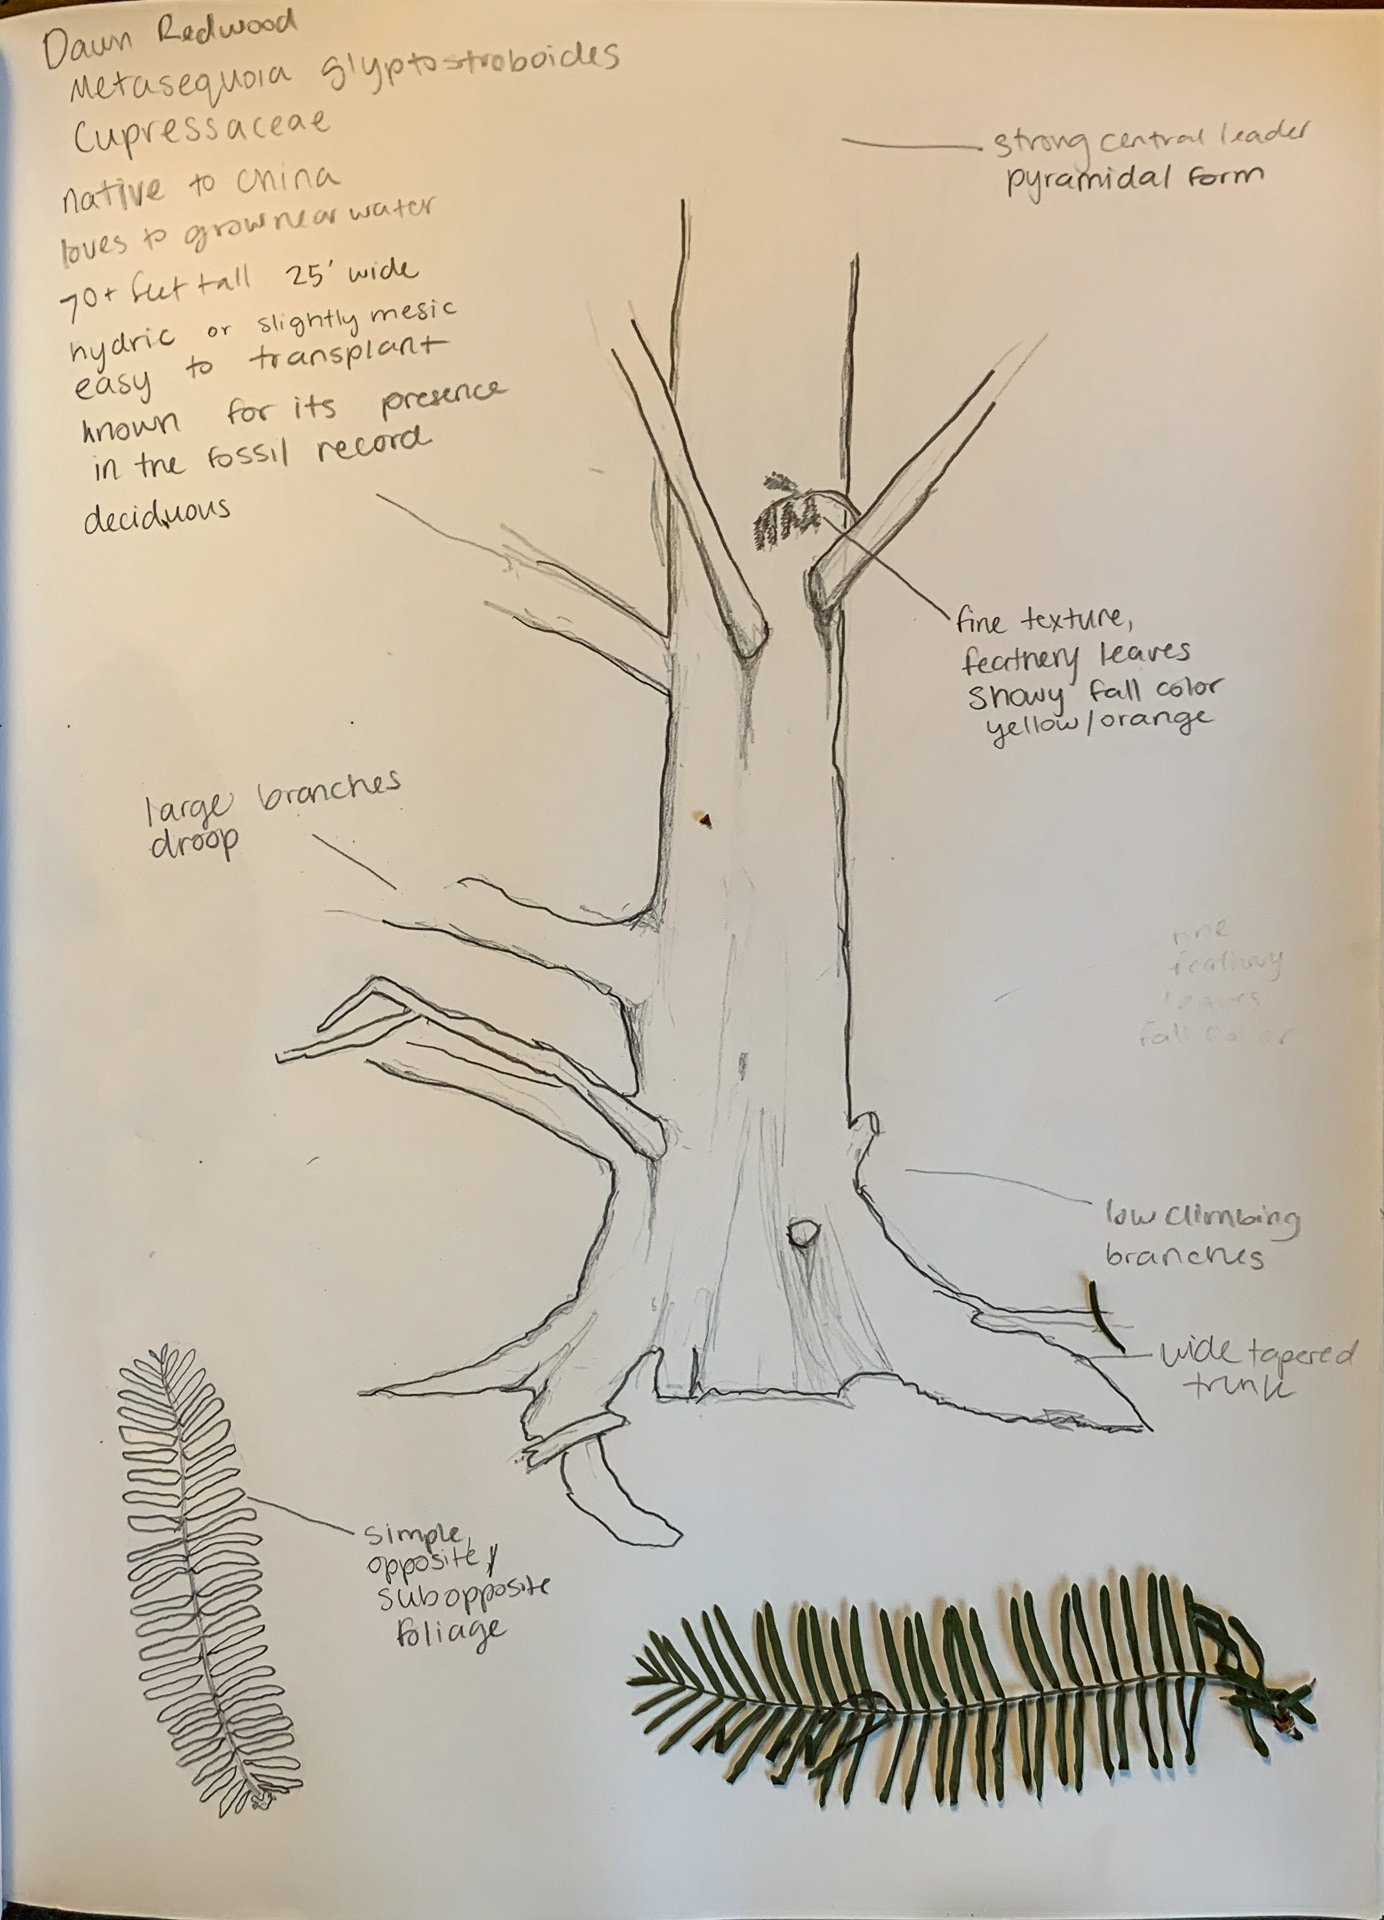 Dawn Redwood
Metasequoia glyptostroboides
Cupressaceae
native to china
loves to grow near water
70+ feet tall 25' wide
hydric or slightly mesic
easy to transplant
known for its presence
in the fossil record
deciduous
strong central leader
pyramidal form
fine texture,
feathery leaves
showy fall color
yellow/orange
large branches
droop
fine
feathery
leaves
fall color
low climbing
branches
wide tapered
trunk
simple,
opposite/
subopposite
foliage